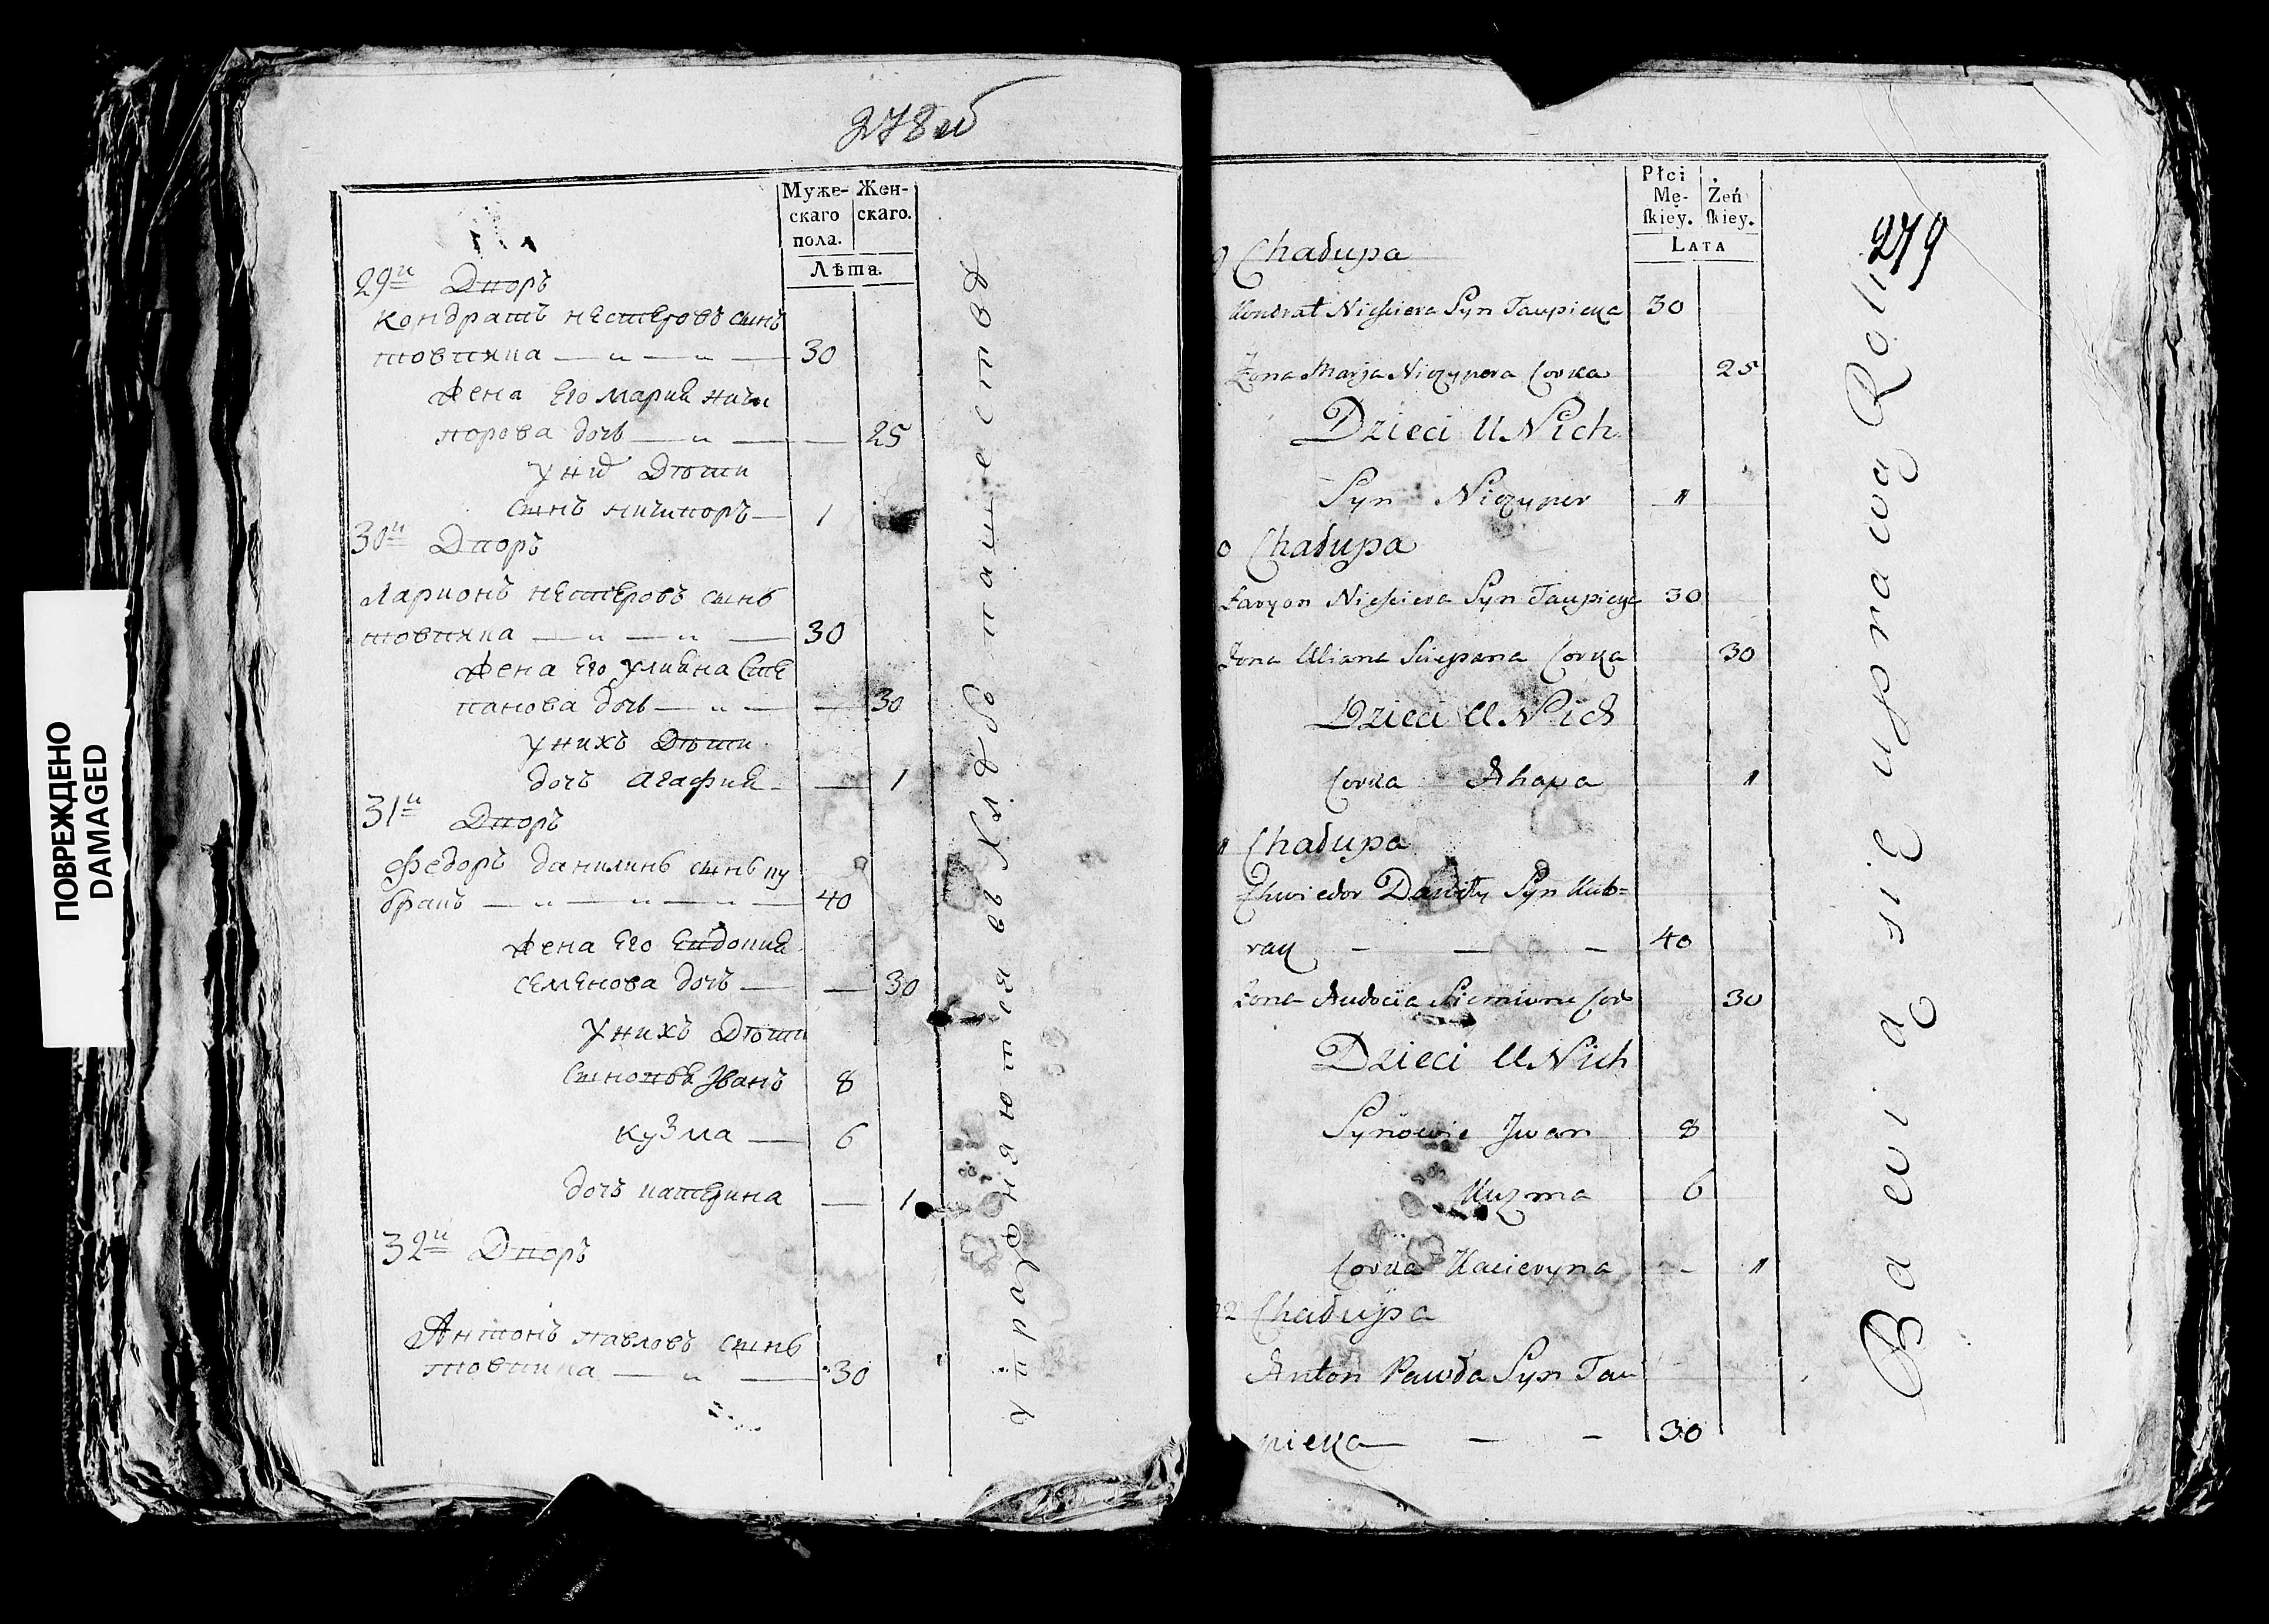 278 об
Муже- Жен-
скаго скаго.
пола.
Лѣта.
29й Дворъ
Кондратъ нестеровъ сынъ
товпяка — „ — „ — 30
жена его мария ничи
порова дочь — „ — — 25
у них дѣти
сынъ ничипоръ — 1
30й Дворъ
Ларионъ нестеровъ сынъ
товпяка — „ — „ — 30
жена его улияна сте
панова дочь — „ — — 30
у нихъ дѣти
дочь агафия — — 1
31й Дворъ
Федоръ данилинъ сынъ ку
бракъ — „ — „ — „ — 40
жена его евдокия
семенова дочь — — 30
у нихъ дѣти
сыновья Иванъ 8
кузма — 6
дочь катерина — 1
32й Дворъ
Антонъ павловъ сынъ
товпика — „ — 30
упражняются въ хлѣбопашествѣ
ПОВРЕЖДЕНО
DAMAGED
279
Płci
Mę- Żeń
skiey. skiey.
LATA
Chałupa
Kondrat Niesciera Syn Taupieka 30
Żona Marja Niczypora Corka 25
Dzieci U Nich
Syn Niczyper 1
0 Chałupa
Łaryon Niesciera Syn Taupieka 30
Żona Uliana Sciepana Corka 30
Dzieci U Nich
Corka Ahapa 1
1 Chałupa
Chwiedor Daniły Syn Kub=
rak — — — 40
Żona Audocia Siemiona Cor 30
Dzieci U Nich
Synowie Jwan 8
Kuzma 6
Corka Kacieryna — 1
32 Chałupa
Anton Pawła Syn Tau
pieka — — — 30
Bawią się uprawą Roli